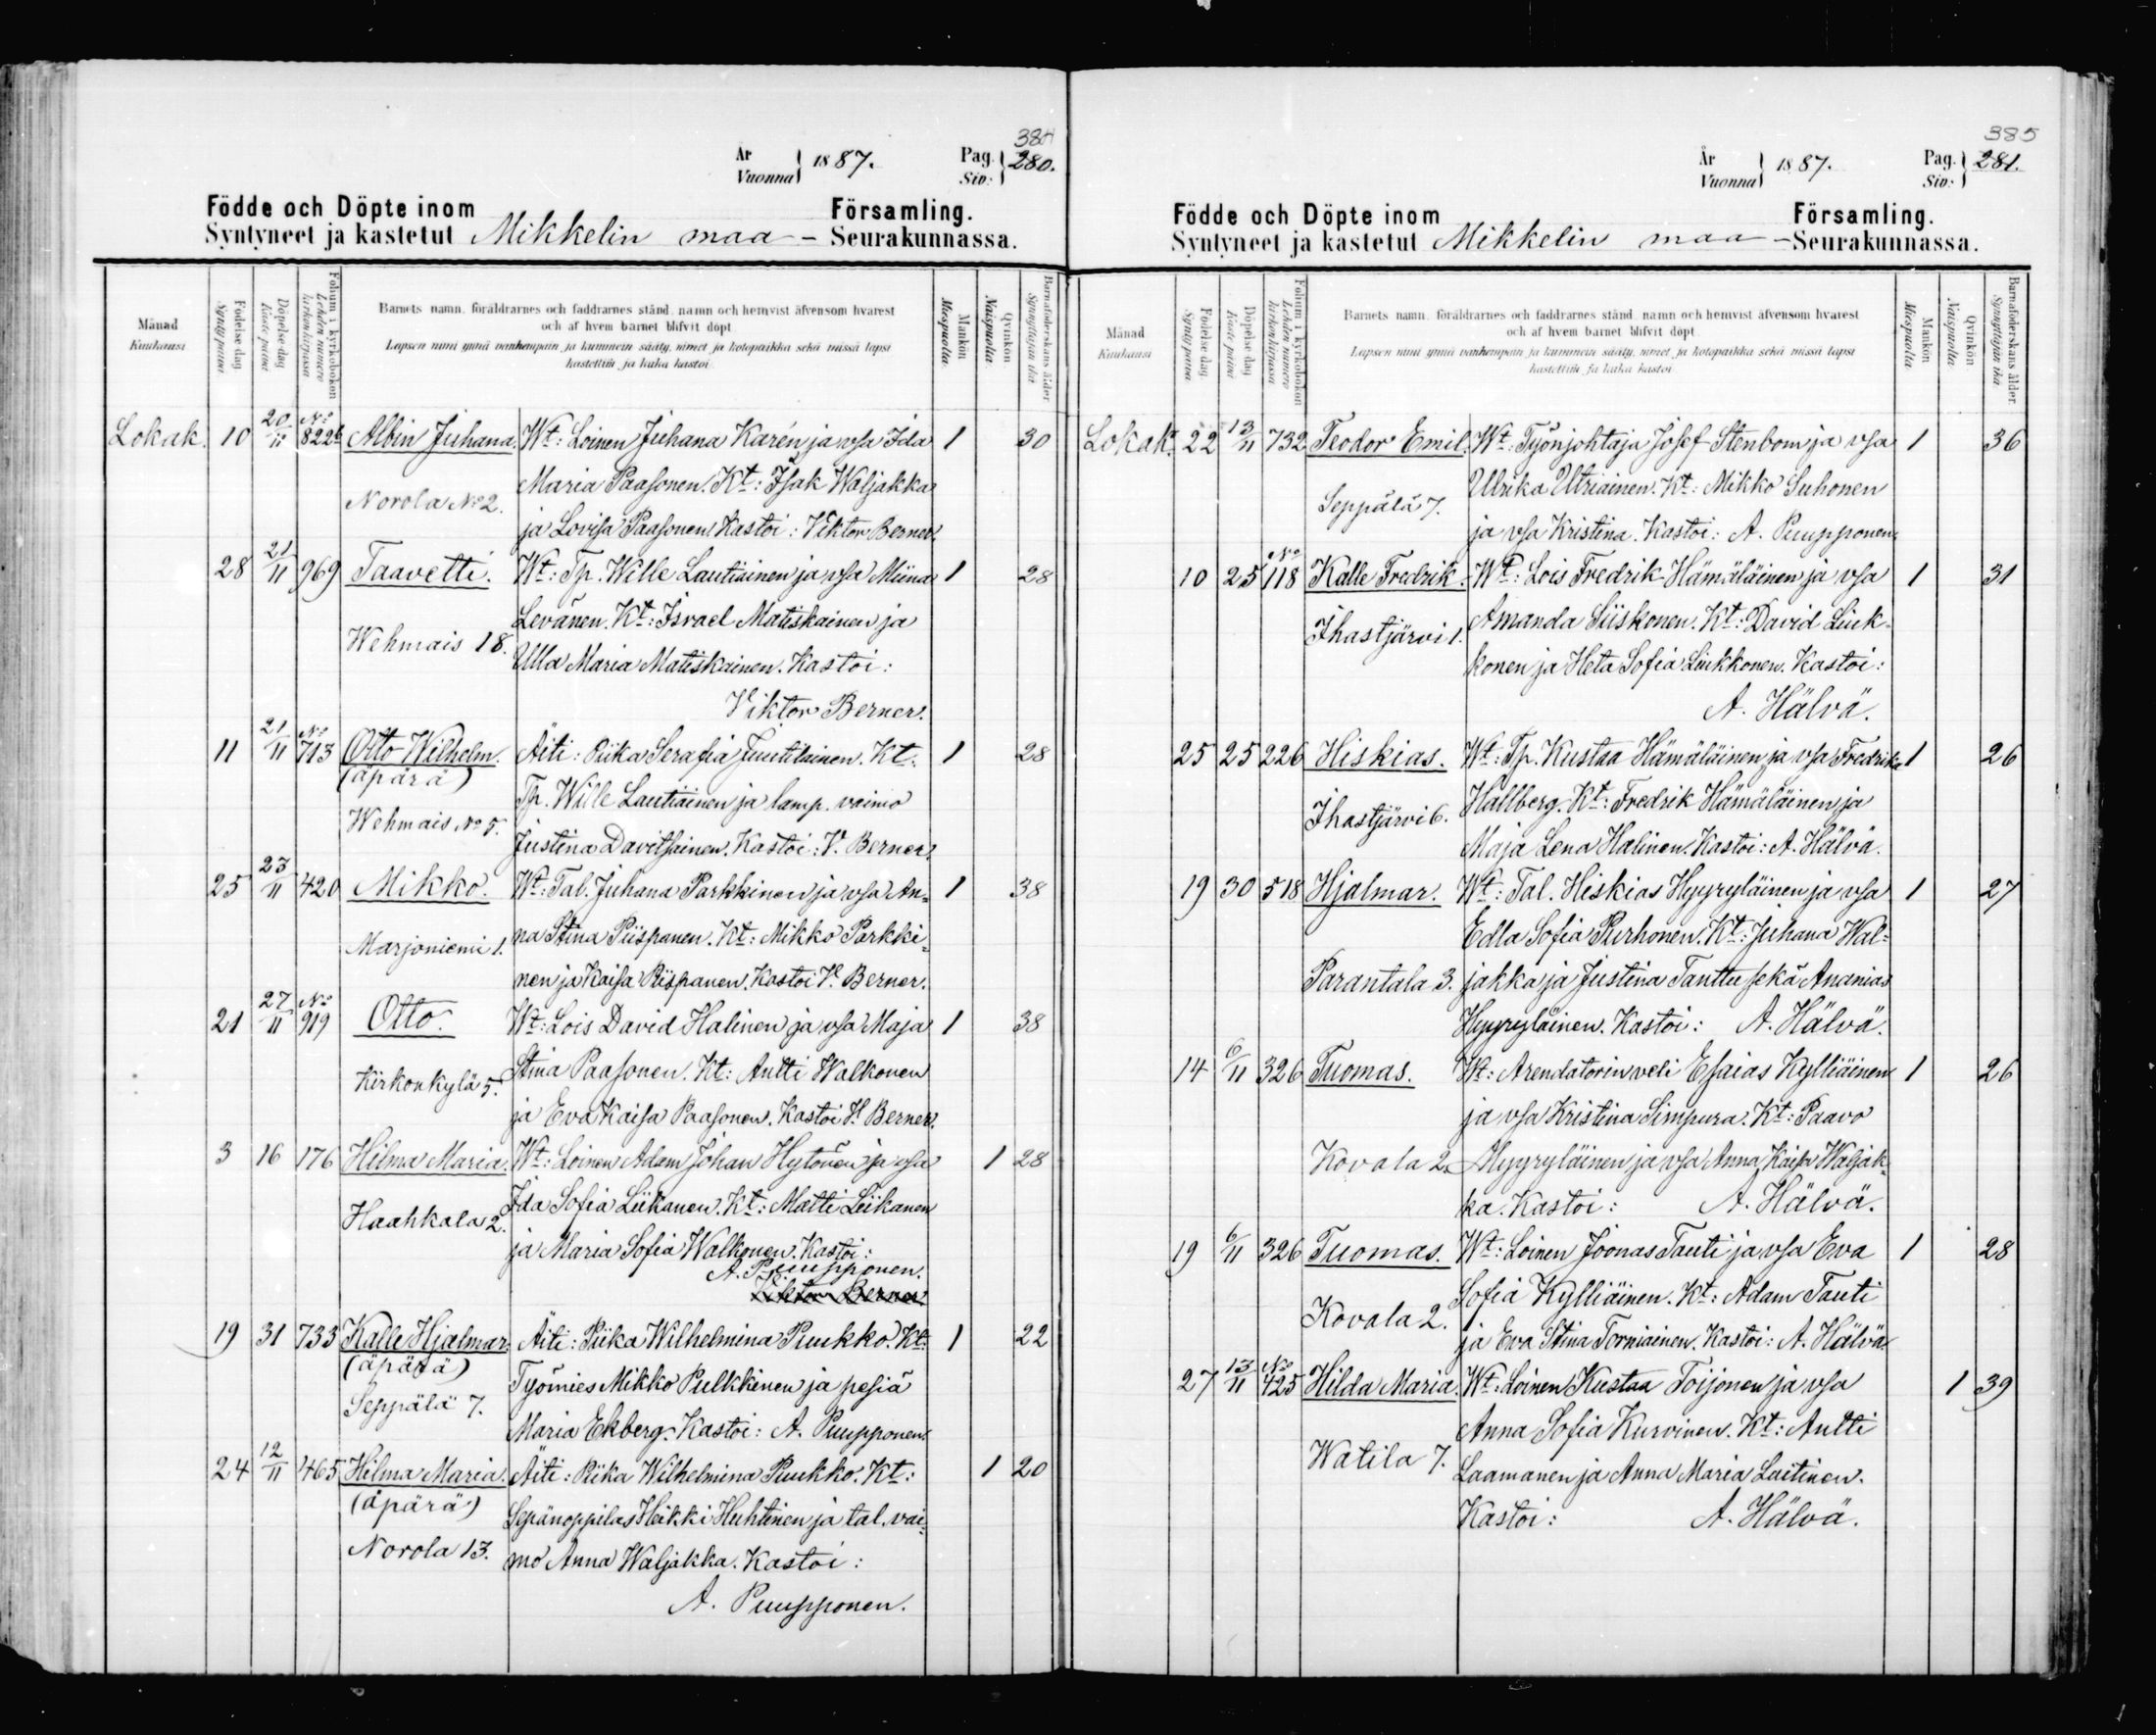 384
År
Vuonna } 1887.
Pag.
Siv: } 280.
Födde och Döpte inom Församling.
Syntyneet ja kastetut Mikkelin maa - Seurakunnassa.
Månad
Kuukausi
Födelse dag
Synty päiwä
Döpelse dag
Kaste päiwä
Folium i kyrkoboken
Lehden numero
kirkonkirjassa
Barnets namn, föräldrarnes och faddrarnes stånd, namn och hemvist äfvensom hvarest
och af hvem barnet blifvit döpt
Lapsen nimi ynnä wanhempain ja kummein sääty, nimet ja kotopaikka sekä missä lapsi
kastettiin ja kuka kastoi
Mankön
Miespuolia
Qvinkön
Naispuolia
Barnaföderskans ålder.
Synnyttäjän ikä
Lokak. 10 20/11 No 822b Albin Juhana. Wt: Loinen Juhana Karén ja vsa Ida 1 30
Maria Paasonen. Kt: Isak Waljakka
Norola No 2.
ja Lovisa Paasonen. Kastoi: Viktor Berner.
28 21/11 969 Taavetti. Wt: Tp. Wille Lautiainen ja vsa Miina 1 28
Levänen. Kt: Israel Matiskainen ja
Wehmais 18.
Ulla Maria Matiskainen. Kastoi:
Viktor Berner.
11 21/11 No 713 Otto Wilhelm. Äiti: Piika Serafia Juutilainen. Kt. 1 28
(äpärä)
Tp. Wille Lautiainen ja lamp. vaimo
Wehmais No 5.
Justina Davitsainen. Kastoi: V. Berner.
25 23/11 420 Mikko. Wt: Tal. Juhana Parkkinen ja vsa An= 1 38
Marjoniemi 1. na Stina Piispanen. Kt: Mikko Parkki=
nen ja Kaisa Piispanen. Kastoi V. Berner.
21 27/11 No 919 Otto. Wt: Lois David Halinen ja vsa Maja 1 38
Kirkonkylä 5. Stina Paasonen. Kt: Antti Walkonen
ja Eva Kaisa Paasonen. Kastoi V. Berner.
3 16 176 Hilma Maria. Wt: Loinen Adam Johan Hytönen ja vsa 1 28
Haahkala 2. Ida Sofia Liikanen. Kt: Matti Liikanen
ja Maria Sofia Walkonen. Kastoi:
A. Puupponen.
Viktor Berner.
19 31 733 Kalle Hjalmar. Äiti: Piika Wilhelmina Puukko. Kt: 1 22
(äpärä)
Työmies Mikko Pulkkinen ja pesiä
Seppälä 7.
Maria Ekberg. Kastoi: A. Puupponen.
24 12/11 465 Hilma Maria. Äiti: Piika Wilhelmina Puukko. Kt: 1 20
(äpärä)
Sepänoppilas Heikki Huhtinen ja tal. vai=
Norola 13. mo Anna Waljakka. Kastoi:
A. Puupponen.
385
År
Vuonna } 1887.
Pag.
Siv: } 281.
Födde och Döpte inom Församling.
Syntyneet ja kastetut Mikkelin maa - Seurakunnassa.
Månad
Kuukausi
Födelse dag
Synty päiwä
Döpelse dag
Kaste päiwä
Folium i kyrkoboken
Lehden numero
kirkonkirjassa
Barnets namn, föräldrarnes och faddrarnes stånd, namn och hemvist äfvensom hvarest
och af hvem barnet blifvit döpt.
Lapsen nimi ynnä wanhempain ja kummein sääty, nimet ja kotopaikka sekä missä lapsi
kastettiin ja kuka kastoi
Mankön
Miespuolia
Qvinkön
Naispuolia
Barnaföderskans ålder.
Synnyttäjän ikä
Lokak. 22 13/11 732 Teodor Emil. Wt: Työnjohtaja Josef Stenbom ja vsa 1 36
Ulrika Utriainen. Kt: Mikko Suhonen
Seppälä 7.
ja vsa Kristina. Kastoi: A. Puupponen.
10 25 No 118 Kalle Fredrik. Wt: Lois Fredrik Hämäläinen ja vsa 1 31
Ihastjärvi 1. Amanda Siiskonen. Kt: David Liuk=
konen ja Heta Sofia Liukkonen. Kastoi:
A. Hälvä.
25 25 226 Hiskias. Wt: Tp. Kustaa Hämäläinen ja vsa Fredrika 1 26
Ihastjärvi 6. Hallberg. Kt: Fredrik Hämäläinen ja
Maja Lena Halinen. Kastoi: A. Hälvä.
19 30 518 Hjalmar. Wt: Tal. Hiskias Hyyryläinen ja vsa 1 27
Edla Sofia Purhonen. Kt: Juhana Wal=
Parantala 3. jakka ja Justina Tanttu sekä Ananias
Hyyryläinen. Kastoi: A. Hälvä.
14 6/11 326 Tuomas. Wt: Arendatorin veli Esaias Kylliäinen 1 26
ja vsa Kristina Simpura. Kt: Paavo
Kovala 2. Myyryläinen ja vsa Anna Kaisa Waljak=
ka. Kastoi: A. Hälvä.
19 6/11 326 Tuomas. Wt: Loinen Joonas Tauti ja vsa Eva 1 28
Sofia Kylliäinen. Kt: Adam Tauti
Kovala 2.
ja Eva Stina Torniainen. Kastoi: A. Hälvä
27 13/11 No 425 Hilda Maria. Wt: Loinen Kustaa Toijonen ja vsa 1 39
Anna Sofia Kurvinen. Kt: Antti
Watila 7. Laamanen ja Anna Maria Laitinen.
Kastoi: A. Hälvä.